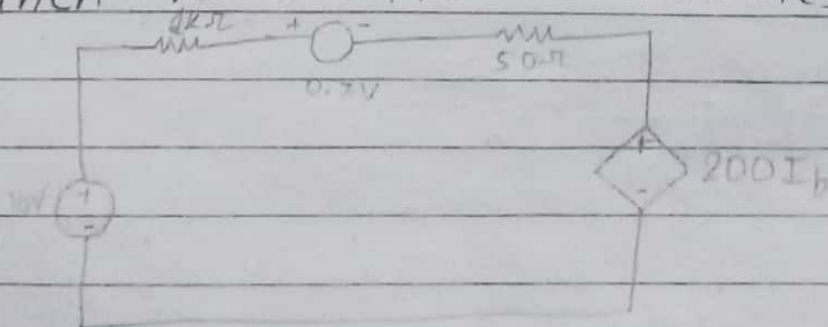 + -
50Ω
0.7V
+
200Ib
-
10V
+
-